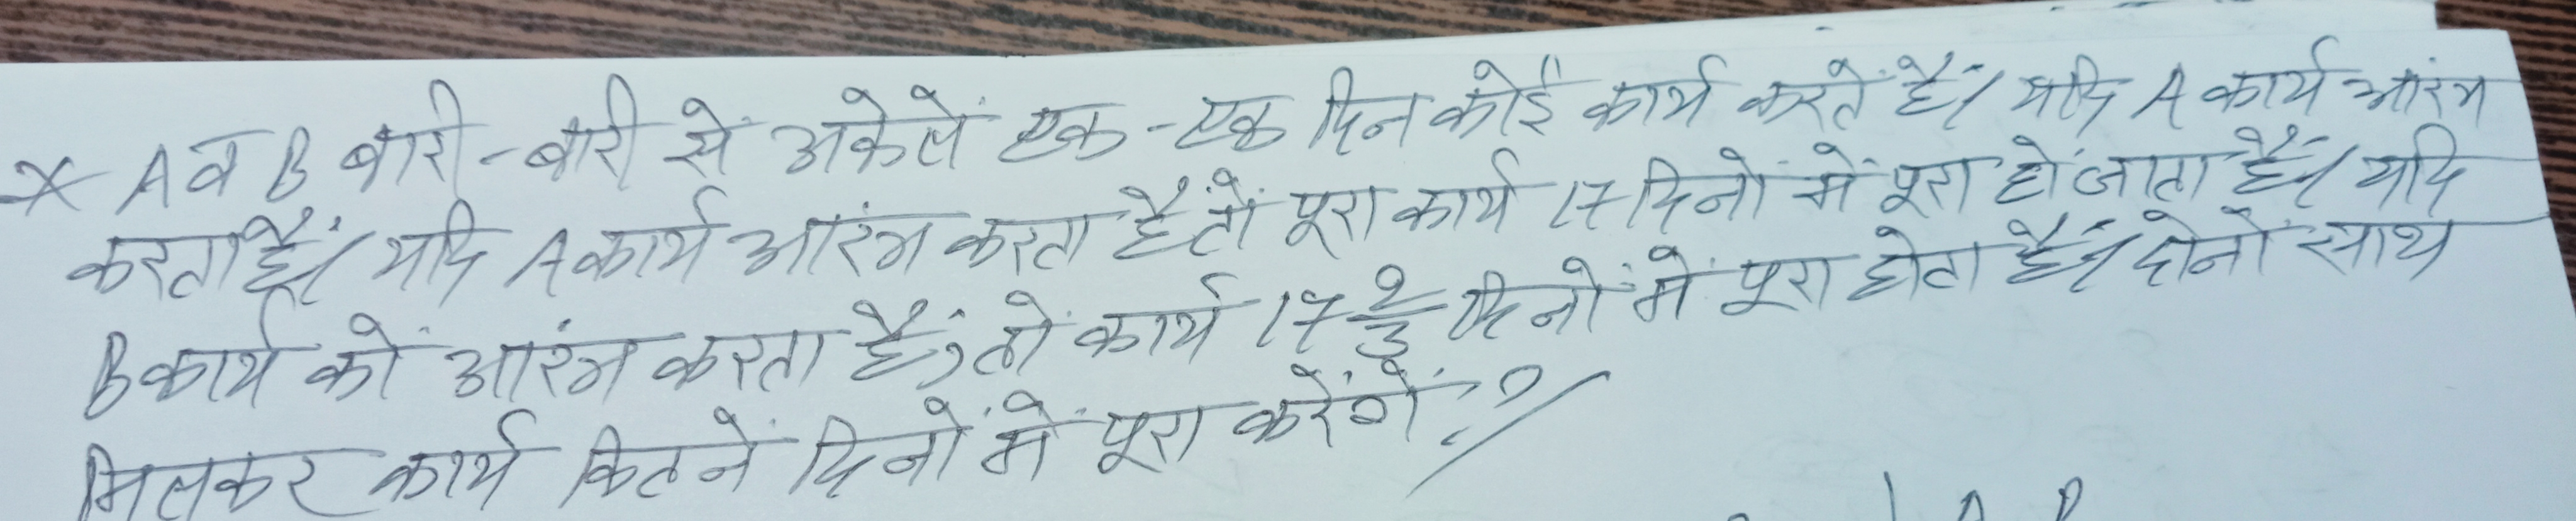 * A व B बारी-बारी से अकेलें एक-एक दिन कोई कार्य करते हैं। यदि A कार्य आरंभ
करता हैं। यदि A कार्य आरंभ करता है तों पूरा कार्य 17 दिनों में पूरा हों जाता हैं। यदि
B कार्य कों आरंभ करता है, तों कार्य 17 2/3 दिनों में पूरा होता हैं। दोनों साथ
मिलकर कार्य कितनें दिनों में पूरा करेंगें?
A B